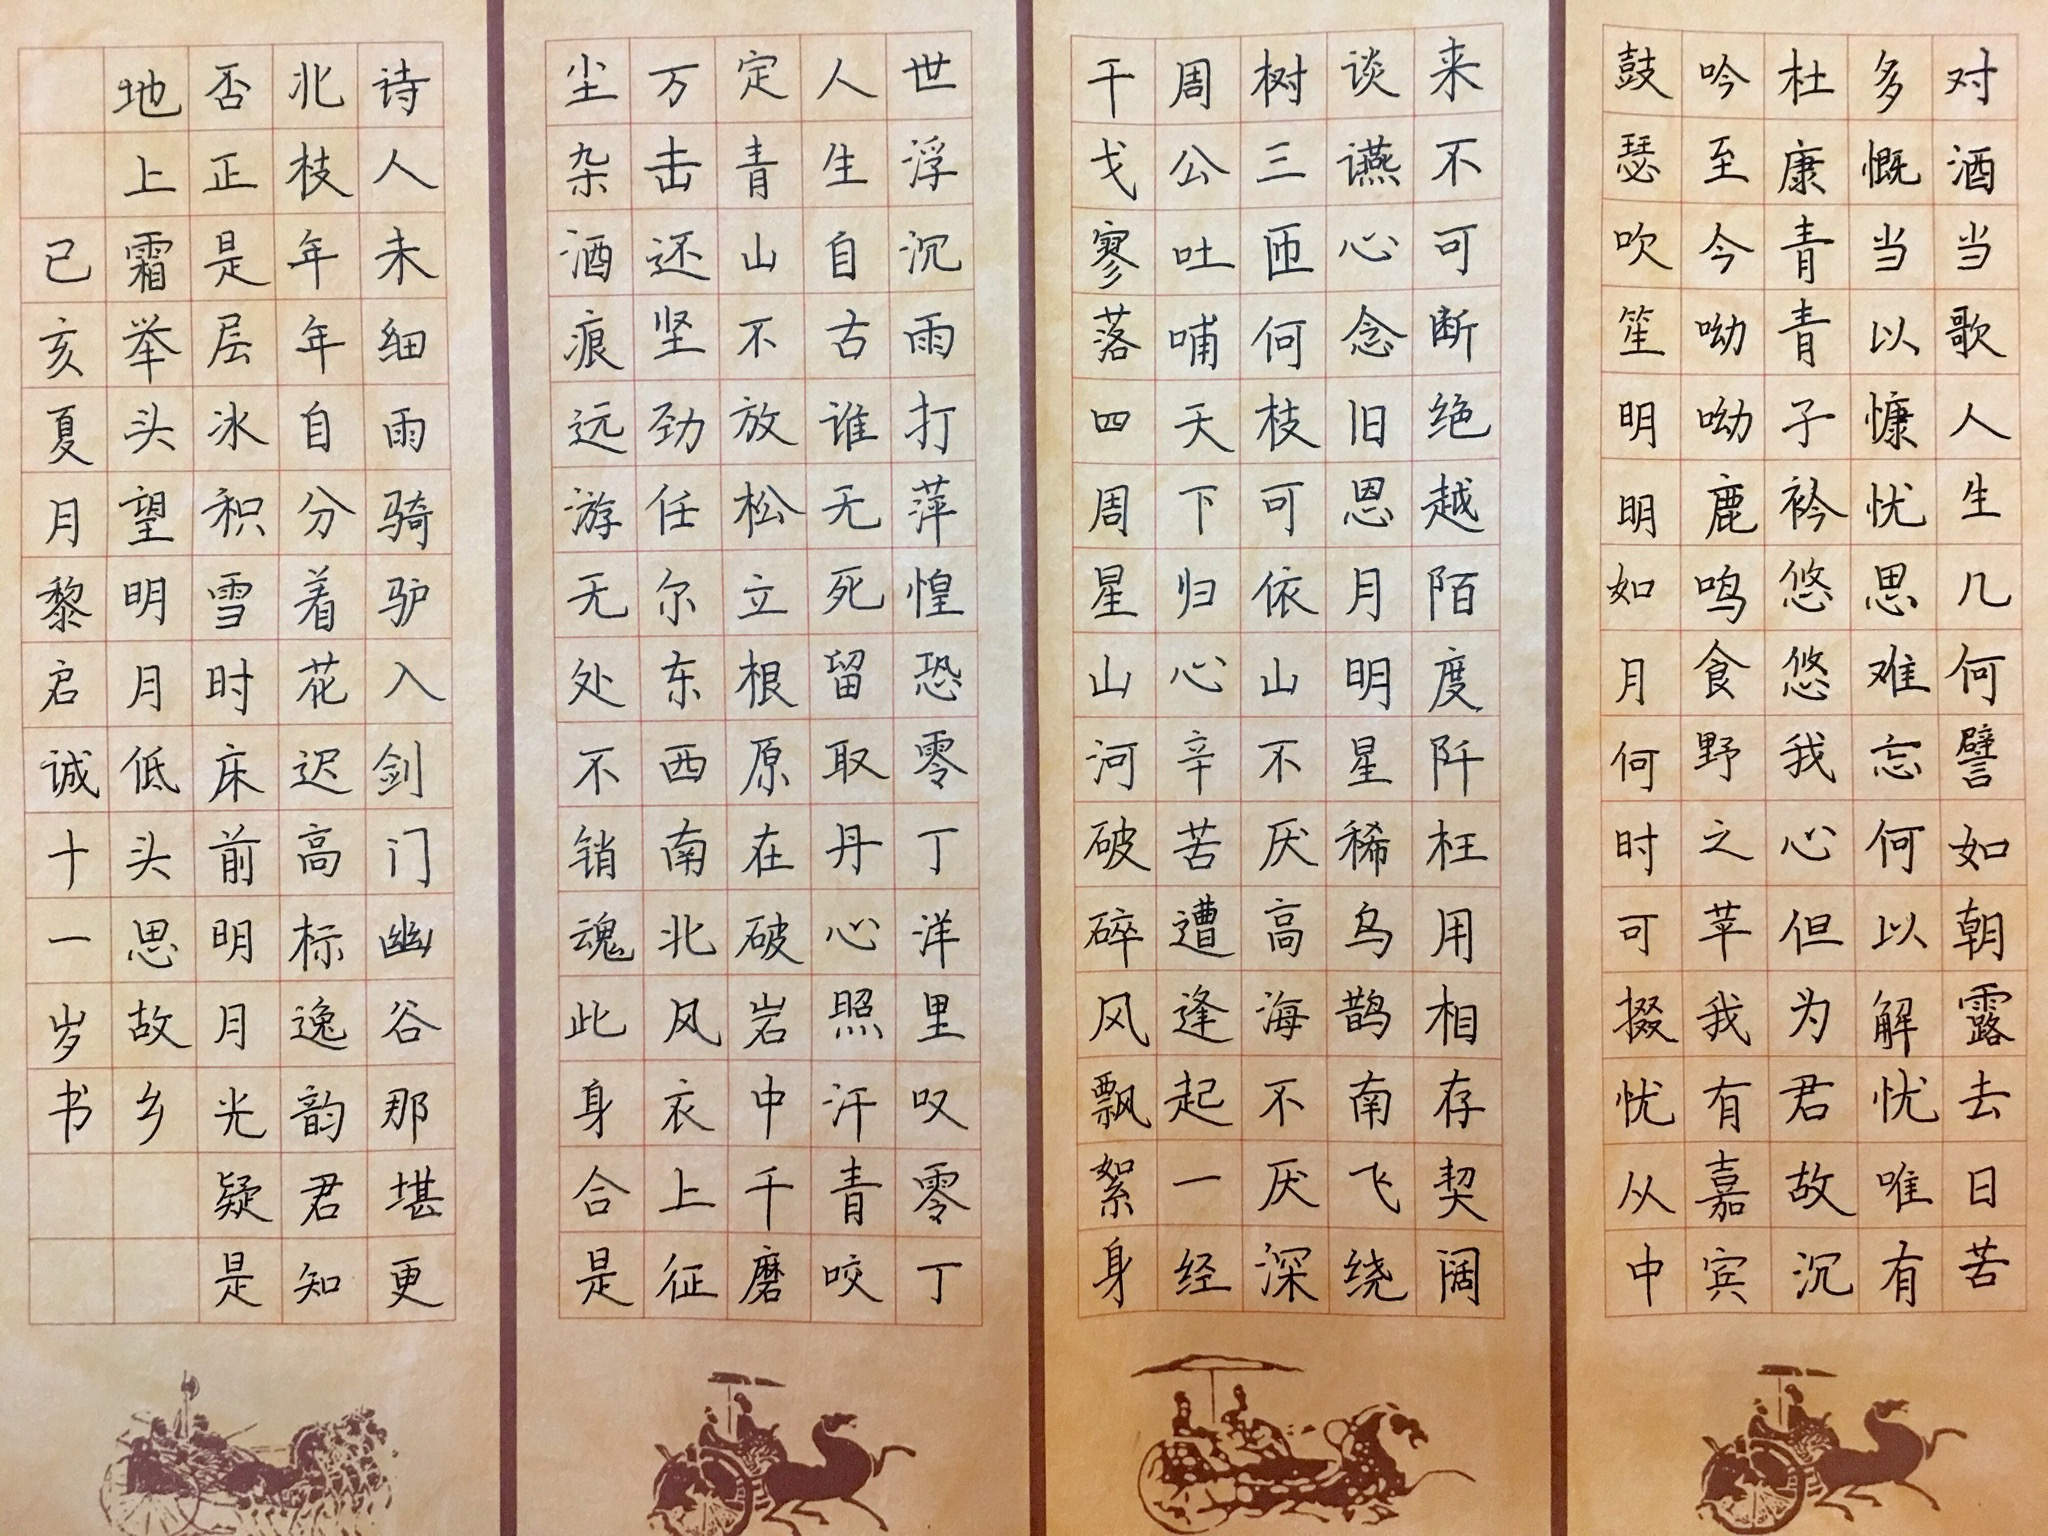 对酒当歌人生几何譬如朝露去日苦
多慨当以慷忧思难忘何以解忧唯有
杜康青青子衿悠悠我心但为君故沉
吟至今呦呦鹿鸣食野之苹我有嘉宾
鼓瑟吹笙明明如月何时可掇忧从中
来不可断绝越陌度阡枉用相存契阔
谈䜩心念旧恩月明星稀乌鹊南飞绕
树三匝何枝可依山不厌高海不厌深
周公吐哺天下归心辛苦遭逢起一经
干戈寥落四周星山河破碎风飘絮身
世浮沉雨打萍惶恐零丁洋里叹零丁
人生自古谁无死留取丹心照汗青咬
定青山不放松立根原在破岩中千磨
万击还坚劲任尔东西南北风衣上征
尘杂酒痕远游无处不销魂此身合是
诗人未细雨骑驴入剑门幽谷那堪更
北枝年年自分着花迟高标逸韵君知
否正是层冰积雪时床前明月光疑是
地上霜举头望明月低头思故乡
己亥夏月黎启诚十一岁书